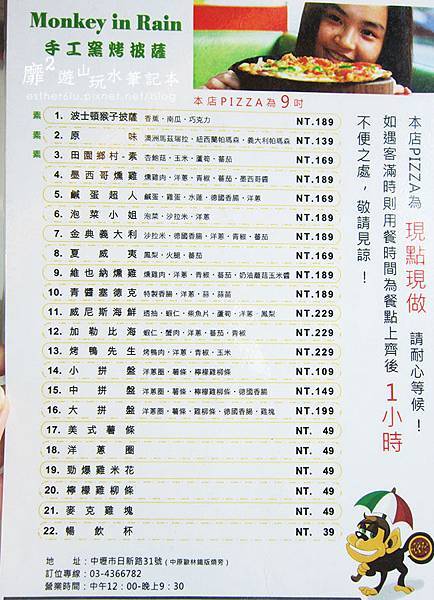 Monkey in Rain
手工窯烤披薩
靡²遊山玩水筆記本
esther6lu.pixnet.net/blog
本店PIZZA為9吋
素 1. 波士頓猴子披薩 香蕉·南瓜·巧克力 NT.189
素 2. 原味 澳洲馬茲瑞拉·紐西蘭帕瑪森·義大利帕瑪森 NT.139
素 3. 田園鄉村-素 杏鮑菇·玉米·蘆筍·蕃茄 NT.169
4. 墨西哥燻雞 燻雞肉·洋蔥·青椒·蕃茄·墨西哥醬 NT.189
5. 鹹蛋超人 鹹蛋·雞蛋·水蓮·德國香腸·洋蔥 NT.169
6. 泡菜小姐 泡菜·沙拉米·洋蔥 NT.189
7. 金典義大利 沙拉米·德國香腸·洋蔥·青椒·蕃茄 NT.189
8. 夏威夷 鳳梨·火腿·蕃茄 NT.169
9. 維也納燻雞 燻雞肉·洋蔥·青椒·蕃茄·奶油蘑菇玉米醬 NT.189
10. 青醬塞德克 特製香腸·洋蔥·蒜·蒜苗 NT.189
11. 威尼斯海鮮 透抽·蝦仁·柴魚片·蘆筍·洋蔥·鳳梨 NT.229
12. 加勒比海 蝦仁·蟹肉·洋蔥·蕃茄·青椒 NT.229
13. 烤鴨先生 烤鴨肉·洋蔥·青椒·玉米 NT.229
14. 小拼盤 洋蔥圈·薯條·檸檬雞柳條 NT.109
15. 中拼盤 洋蔥圈·薯條·檸檬雞柳條·德國香腸 NT.149
16. 大拼盤 洋蔥圈·薯條·雞柳條·德國香腸·雞塊 NT.199
17. 美式薯條 NT. 49
18. 洋蔥圈 NT. 49
19. 勁爆雞米花 NT. 49
20. 檸檬雞柳條 NT. 49
21. 麥克雞塊 NT. 49
22. 暢飲杯 NT. 39
本店PIZZA為 現點現做 請耐心等候！
如遇客滿時則用餐時間為餐點上齊後 1小時
不便之處，敬請見諒！
地址：中壢市日新路31號（中原歐林鐵版燒旁）
訂位專線：03-4366782
營業時間：中午12：00-晚上9：30